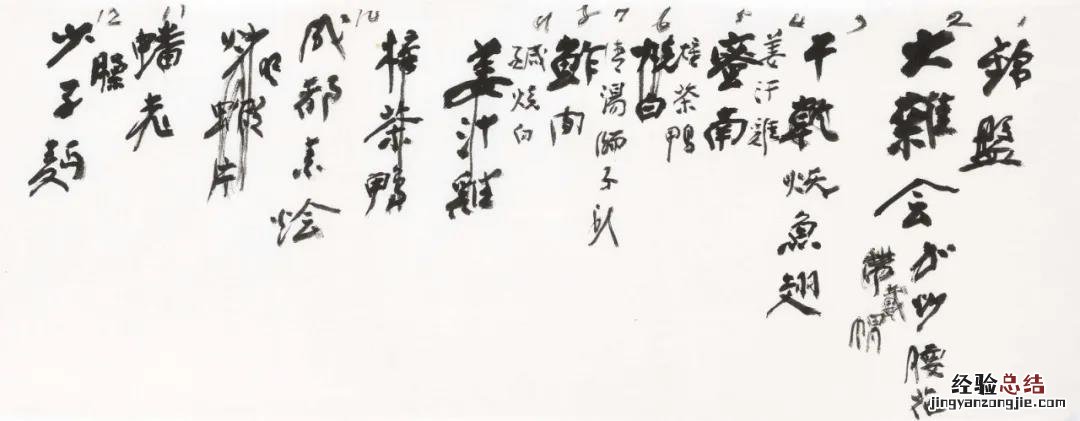 1
錦盤
2
大雜会
炒腰花
帶
戴帽
3
干
魚翅
4
姜汁雞
5
蜜南
6
燒白
柴鴨
7
清湯獅子頭
8
鮓肉
9
鹹燒白
姜汁雞
柴鴨
10
成都素烩
炒明蝦片
11
蟠老
12
臊
少子麵
经验总结
jingyanzongjie.com